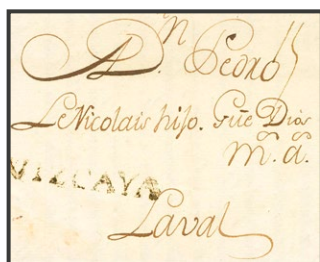 A Dn. Pedro
Le Nicolais hijo. Gũe Dios
m.s a.s
VIZCAYA
Laval